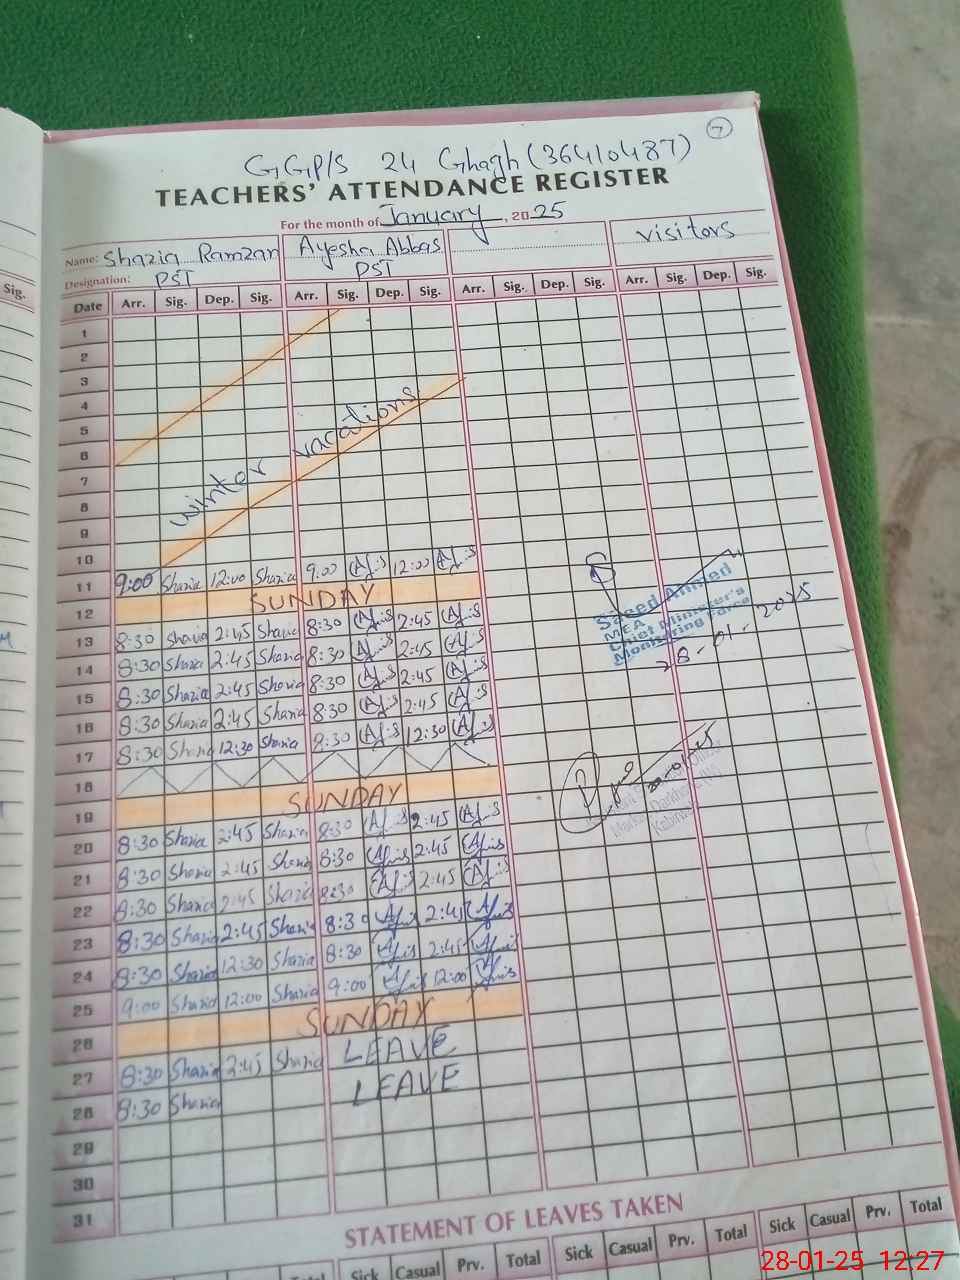 7
GGP/S 24 Ghagh (36410487)
TEACHERS' ATTENDANCE REGISTER
For the month of January, 2025
Name: Shazia Ramzan Ayesha Abbas visitors
Designation: PST PST
Sig.
Date Arr. Sig. Dep. Sig. Arr. Sig. Dep. Sig. Arr. Sig. Dep. Sig. Arr. Sig. Dep. Sig.
1
2
3
4
5
6
7
8
9
winter vacations
10
11 9:00 Shazia 12:00 Shazia 9:00 12:00
12 SUNDAY
13 8:30 Shazia 2:45 Shazia 8:30 2:45
14 8:30 Shazia 2:45 Shazia 8:30 2:45
15 8:30 Shazia 2:45 Shazia 8:30 2:45
16 8:30 Shazia 2:45 Shazia 8:30 2:45
17 8:30 Shazia 12:30 Shazia 8:30 12:30
18
19 SUNDAY
20 8:30 Shazia 2:45 Shazia 8:30 2:45
21 8:30 Shazia 2:45 Shazia 8:30 2:45
22 8:30 Shazia 2:45 Shazia 8:30 2:45
23 8:30 Shazia 2:45 Shazia 8:30 2:45
24 8:30 Shazia 12:30 Shazia 8:30 2:45
25 9:00 Shazia 12:00 Shazia 9:00 12:00
26 SUNDAY
27 8:30 Shazia 2:45 Shazia LEAVE
28 8:30 Shazia LEAVE
29
30
31
Saeed Ahmed
MEA
Chief Minister's
Monitoring Force
28-01-2025
STATEMENT OF LEAVES TAKEN
Sick Casual Prv. Total Sick Casual Prv. Total Sick Casual Prv. Total
28-01-25 12:27